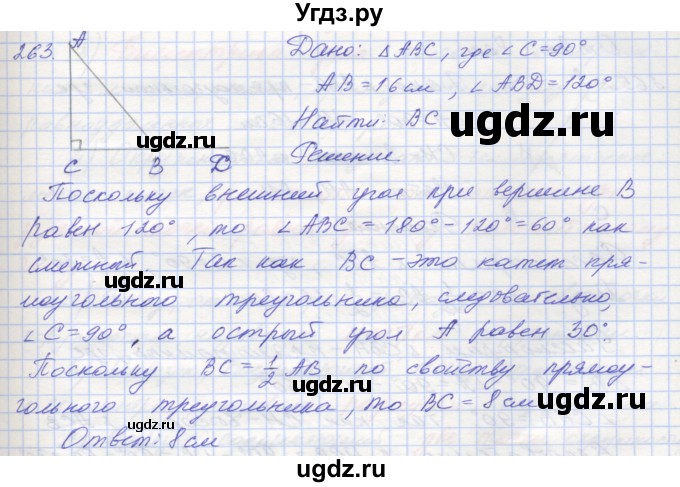 Угдз.ру
263.
A
C B D
Дано: △ABC, где ∠C=90°
AB=16см, ∠ABD=120°
Найти: BC
Решение
Поскольку внешний угол при вершине B
равен 120°, то ∠ABC = 180°-120°=60° как
смежный. Так как BC - это катет пря-
моугольного треугольника, следовательно,
∠C=90°, а острый угол A равен 30°.
Поскольку BC = 1/2 AB по свойству прямоу-
гольного треугольника, то BC = 8 см
Ответ: 8см
ugdz.ru
ugdz.ru
ugdz.ru
ugdz.ru
ugdz.ru
ugdz.ru
ugdz.ru
ugdz.ru
ugdz.ru
ugdz.ru